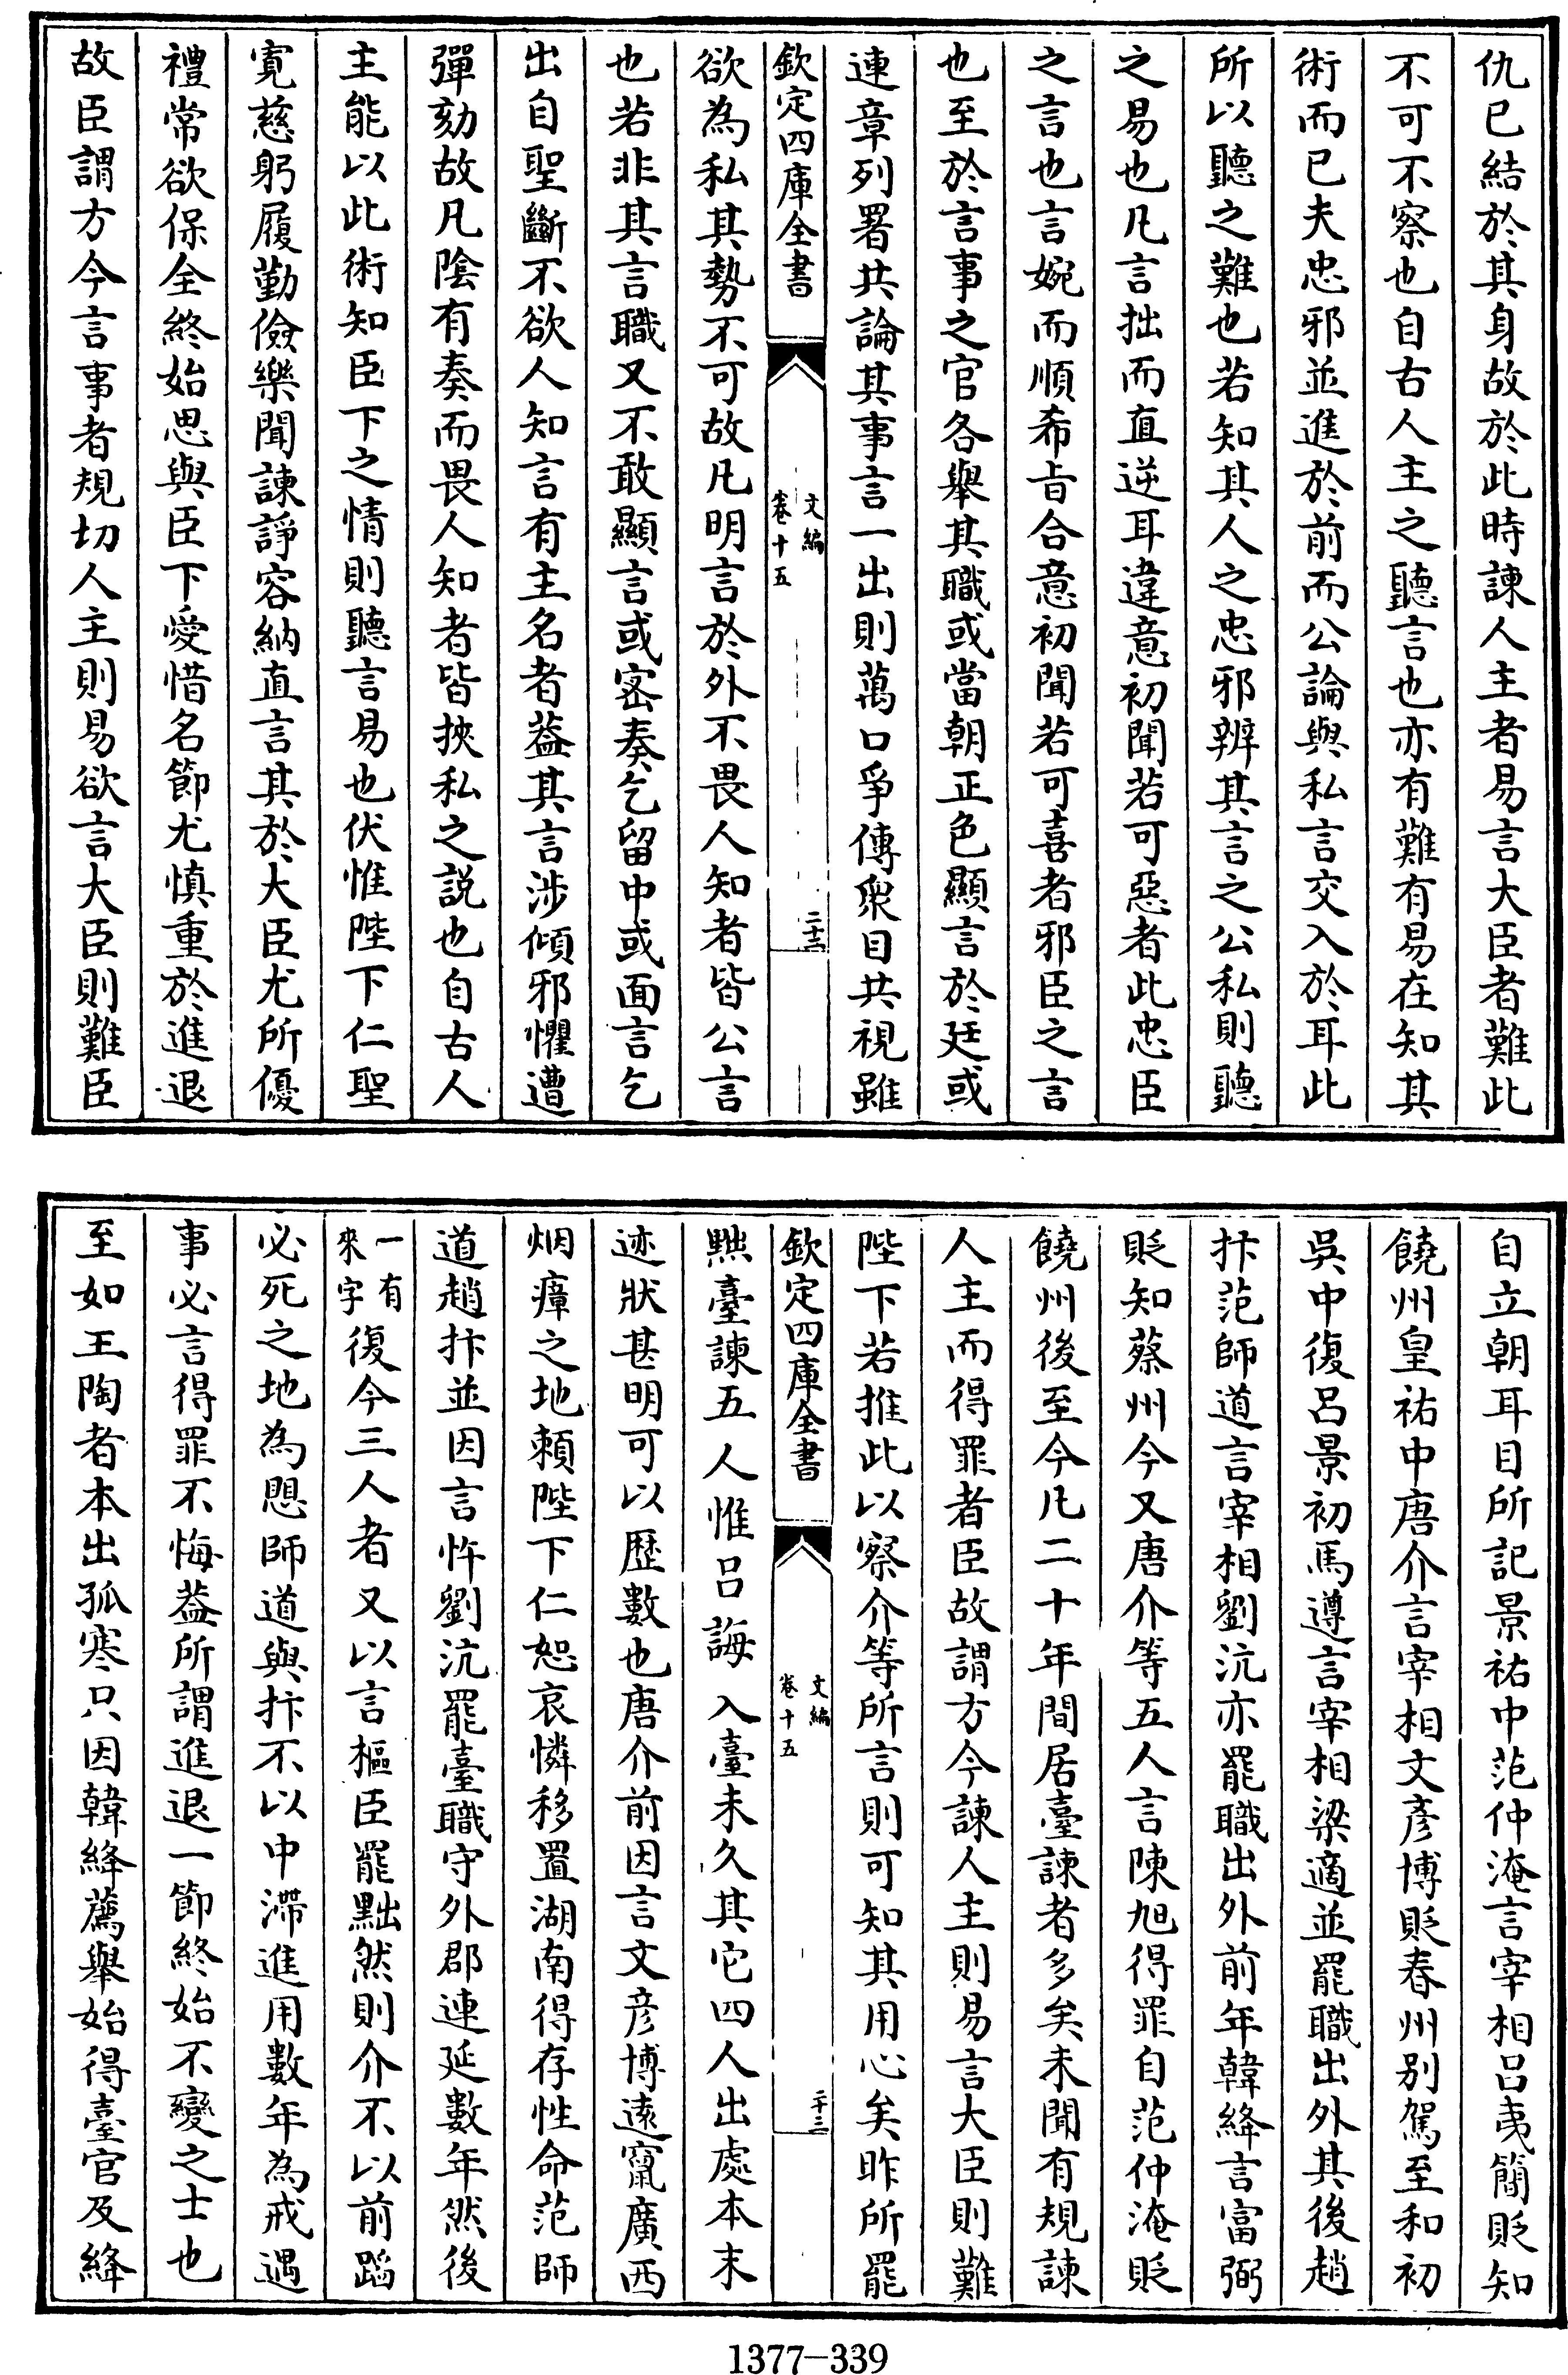 仇已結於其身故於此時諫人主者易言大臣者難此
不可不察也自古人主之聽言也亦有難有易在知其
術而已夫忠邪並進於前而公論與私言交入於耳此
所以聽之難也若知其人之忠邪辨其言之公私則聽
之易也凡言拙而直逆耳違意初聞若可惡者此忠臣
之言也言婉而順希旨合意初聞若可喜者邪臣之言
也至於言事之官各舉其職或當朝正色顯言於廷或
連章列署共論其事言一出則萬口爭傳衆目共視雖
欽定四庫全書
文編
卷十五
二十二
欲為私其勢不可故凡明言於外不畏人知者皆公言
也若非其言職又不敢顯言或密奏乞留中或面言乞
出自聖斷不欲人知言有主名者葢其言涉傾邪懼遭
彈劾故凡陰有奏而畏人知者皆挾私之説也自古人
主能以此術知臣下之情則聽言易也伏惟陛下仁聖
寛慈躬履勤儉樂聞諫諍容納直言其於大臣尤所優
禮常欲保全終始思與臣下愛惜名節尤慎重於進退
故臣謂方今言事者規切人主則易欲言大臣則難臣
自立朝耳目所記景祐中范仲淹言宰相吕夷簡貶知
饒州皇祐中唐介言宰相文彥博貶春州别駕至和初
吳中復吕景初馬遵言宰相梁適並罷職出外其後趙
抃范師道言宰相劉沆亦罷職出外前年韓絳言富弼
貶知蔡州今又唐介等五人言陳旭得罪自范仲淹貶
饒州後至今凡二十年間居臺諫者多矣未聞有規諫
人主而得罪者臣故謂方今諫人主則易言大臣則難
陛下若推此以察介等所言則可知其用心矣昨所罷
欽定四庫全書
文編
卷十五
二十三
黜臺諫五人惟吕誨入臺未久其它四人出處本末
迹狀甚明可以歴數也唐介前因言文彥博遠竄廣西
烟瘴之地頼陛下仁恕哀憐移置湖南得存性命范師
道趙抃並因言忤劉沆罷臺職守外郡連延數年然後
一有
來字
復今三人者又以言樞臣罷黜然則介不以前蹈
必死之地為懼師道與抃不以中滯進用數年為戒遇
事必言得罪不悔葢所謂進退一節終始不變之士也
至如王陶者本出孤寒只因韓絳薦舉始得臺官及絳
1377—339